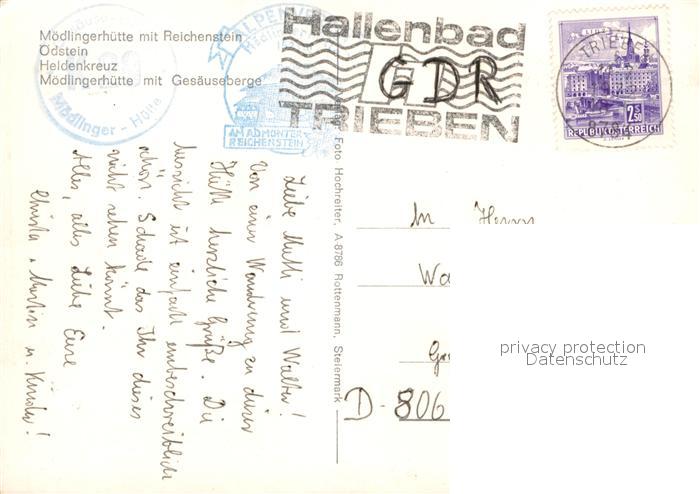 Mödlingerhütte mit Reichenstein
Ödstein
Heldenkreuz
Mödlingerhütte mit Gesäuseberge
Mödlinger - Hütte
AM ADMONTER
REICHENSTEIN
Hallenbad
GDR
TRIEBEN
TRIEBEN
LINZ
2.50
REPUBLIK ÖSTERREICH
Foto Hochreiter, A-8786 Rottenmann, Steiermark
Liebe Mutti und Walter!
Von einer Wanderung zu dieser
Hütte herzliche Grüße. Die
Aussicht ist einfach unbeschreiblich
schön. Schade das Ihr dieses
nicht sehen könnt.
Alles, alles Liebe Eure
Christa, Martin u. Kinder!
In Herrn
Wa
D-806
privacy protection
Datenschutz